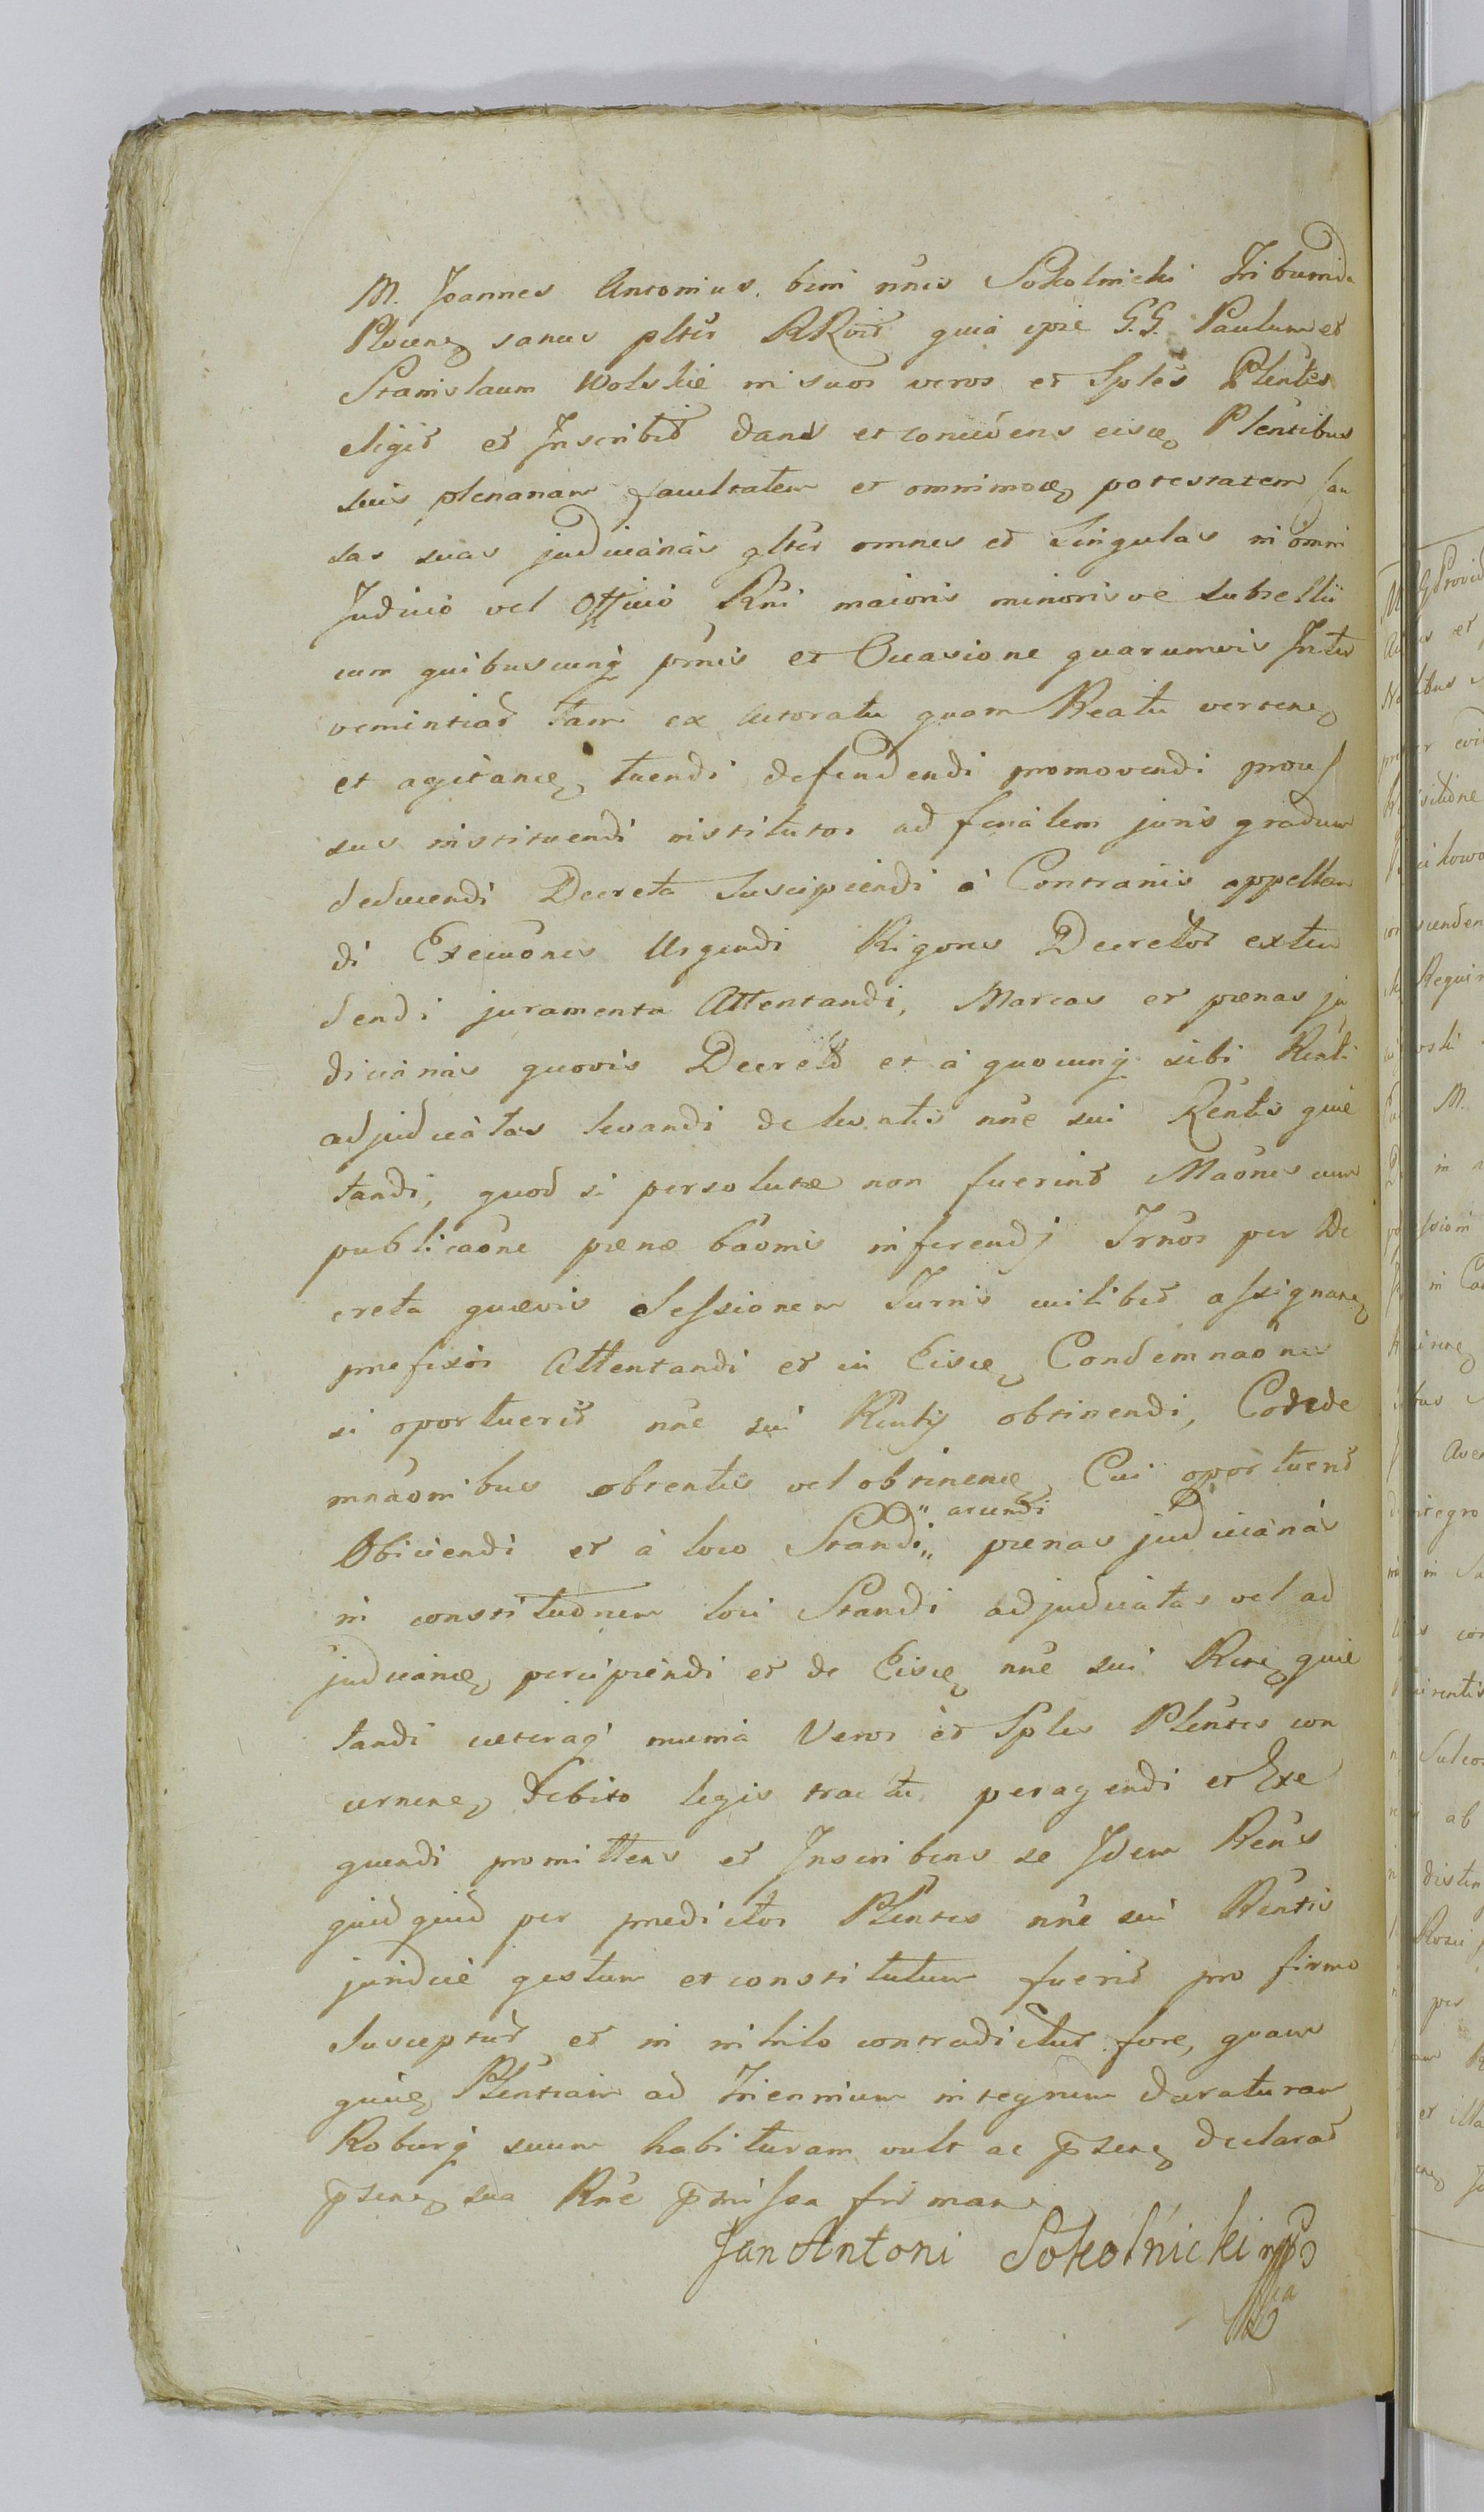 M. Joannes Antonius bini nnis Sokolnicki Tribunida
Plocens sanus plter RRvit quia ipse G.G. Paulum et
Stanislaum Wolskie in suos veros et Sples Plentes
eligit et Inscribit dans et concedens eisdem Plentibus
suis plenariam facultatem et omnimodam potestatem Cau
sas suas judiciarias glter omnes et singulas in omni
Judicio vel Officio Rni maioris minorisve subsellii
cum quibuscunq prnis et Occasione quarumvis Inter
venientiar tam ex Actoratu quam Reatu verten
et agitand tuendi defendendi promovendi proces
sus instituendi institutos ad finalem juris gradum
deducendi Decreta suscipiendi à Contrariis appellan
di Exeuones Urgendi Rigores Decretor exten
dendi juramenta Attentandi, Marcas et pœnas ju
diciarias quovis Decreto et à quocunq sibi Renti
adjudicatas levandi de levatis nne sui Rentis quie
tandi, quod si persolutæ non fuerint Maones cum
publicaone pœnæ baonis inferendj Trnos per De
creta quævis Sessionem Turris cuilibet assignand
prefixos Attentandi et in Eisd Condemnaones
si oportuerit nne sui Rentis obtinendi, Condede
mnaonibus obtentis vel obtinend Cui oportuerit
Obiciendi et à loco Standi „ arcendi „ pœnas judiciarias
in constitudnem loci Standi adjudicatas vel ad
judicand percipiendi et de Eisd nne sui Rent quie
tandi ceteraq munia Veros et Sples Plentes con
cernen debito legis tractu peragendi et Exe
quendi promittens et Inscribens se Idem Rens
quidquid per predictos Plentes nne sui Rentis
juridice gestum et constitutum fuerit pro firmo
Susceptur et in nihilo contradictur fore, quam
quid Plentiam ad Triennium integrum duraturam
Roburq suum habituram vult ac psen declarat
psen sua Rne pmissa firman
Jan Antoni Sokolnicki mpp